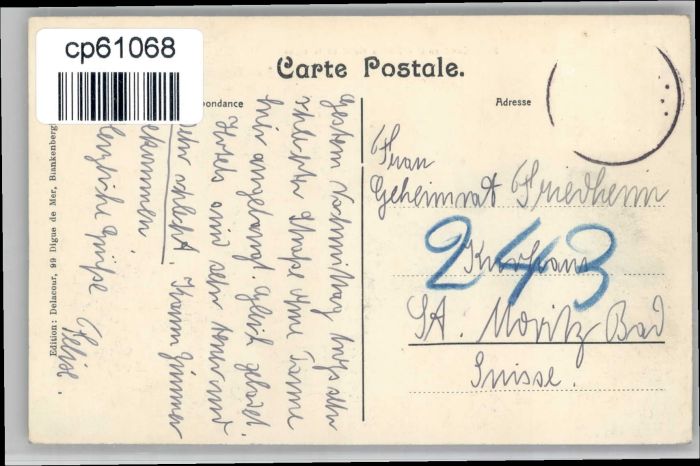 cp61068
Carte Postale.
pondance
Adresse
Edition: Delacour, 99 Digue de Mer, Blankenberg
Gestern Nachmittag
Straße ohne
hier angelangt.
Hotels sind sehr teuer und
sehr schlecht. Kaum Zimmer
bekommen
Herzliche Grüße
Frau
Geheimrat Friedheim
Kurhaus
243
St. Moritz Bad
Suisse.